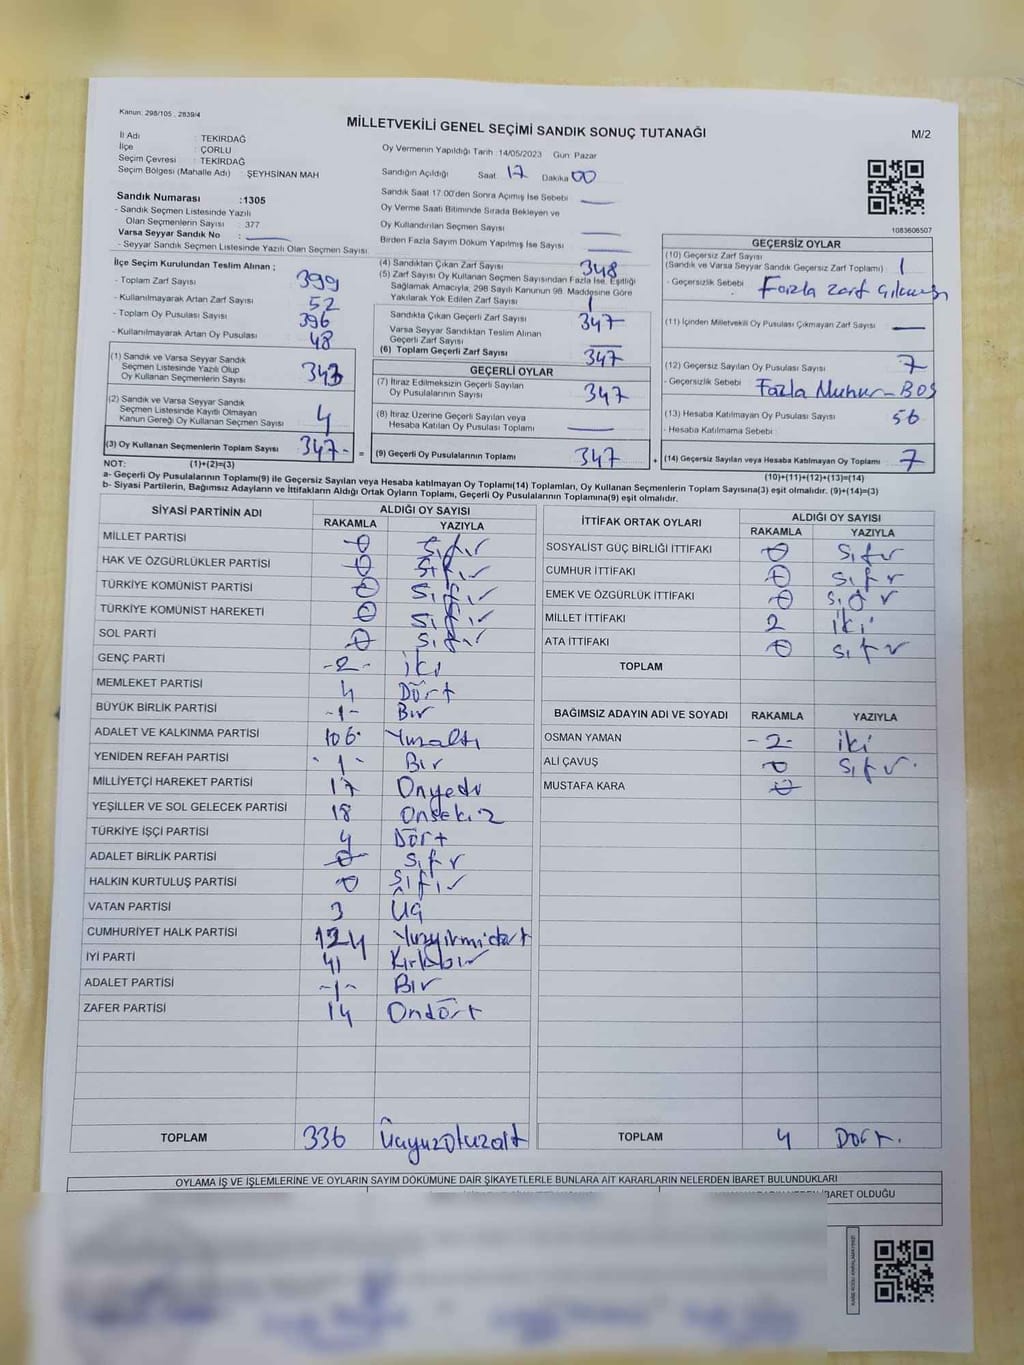 Kanun: 298/105 , 2839/4
MİLLETVEKİLİ GENEL SEÇİMİ SANDIK SONUÇ TUTANAĞI
M/2
İl Adı : TEKİRDAĞ
İlçe : ÇORLU
Seçim Çevresi : TEKİRDAĞ
Seçim Bölgesi (Mahalle Adı) : ŞEYHSİNAN MAH
Oy Vermenin Yapıldığı Tarih :14/05/2023 Gün: Pazar
Sandığın Açıldığı Saat 17 Dakika 00
Sandık Saat 17:00'den Sonra Açımış İse Sebebi
Oy Verme Saati Bitiminde Sırada Bekleyen ve
Oy Kullandırılan Seçmen Sayısı
Birden Fazla Sayım Döküm Yapılmış İse Sayısı
1083606507
Sandık Numarası :1305
- Sandık Seçmen Listesinde Yazılı
Olan Seçmenlerin Sayısı : 377
Varsa Seyyar Sandık No :
- Seyyar Sandık Seçmen Listesinde Yazılı Olan Seçmen Sayısı
İlçe Seçim Kurulundan Teslim Alınan ;
- Toplam Zarf Sayısı 399
- Kullanılmayarak Artan Zarf Sayısı 52
- Toplam Oy Pusulası Sayısı 396
- Kullanılmayarak Artan Oy Pusulası 48
(1) Sandık ve Varsa Seyyar Sandık
Seçmen Listesinde Yazılı Olup
Oy Kullanan Seçmenlerin Sayısı 343
(2) Sandık ve Varsa Seyyar Sandık
Seçmen Listesinde Kayıtlı Olmayan
Kanun Gereği Oy Kullanan Seçmen Sayısı 4
(3) Oy Kullanan Seçmenlerin Toplam Sayısı 347 =
(4) Sandıktan Çıkan Zarf Sayısı 348
(5) Zarf Sayısı Oy Kullanan Seçmen Sayısından Fazla İse, Eşitliği
Sağlamak Amacıyla, 298 Sayılı Kanunun 98. Maddesine Göre
Yakılarak Yok Edilen Zarf Sayısı 1
Sandıkta Çıkan Geçerli Zarf Sayısı 347
Varsa Seyyar Sandıktan Teslim Alınan
Geçerli Zarf Sayısı
(6) Toplam Geçerli Zarf Sayısı 347
GEÇERLİ OYLAR
(7) İtiraz Edilmeksizin Geçerli Sayılan
Oy Pusulalarının Sayısı 347
(8) İtiraz Üzerine Geçerli Sayılan veya
Hesaba Katılan Oy Pusulası Toplamı
(9) Geçerli Oy Pusulalarının Toplamı 347 +
GEÇERSİZ OYLAR
(10) Geçersiz Zarf Sayısı
(Sandık ve Varsa Seyyar Sandık Geçersiz Zarf Toplamı) 1
- Geçersizlik Sebebi Fazla Zarf
(11) İçinden Milletvekili Oy Pusulası Çıkmayan Zarf Sayısı
(12) Geçersiz Sayılan Oy Pusulası Sayısı 7
- Geçersizlik Sebebi Fazla Mühür-BOŞ
(13) Hesaba Katılmayan Oy Pusulası Sayısı 56
- Hesaba Katılmama Sebebi
(14) Geçersiz Sayılan veya Hesaba Katılmayan Oy Toplamı 7
NOT: (1)+(2)=(3)
(10)+(11)+(12)+(13)=(14)
a- Geçerli Oy Pusulalarının Toplamı(9) ile Geçersiz Sayılan veya Hesaba katılmayan Oy Toplamı(14) Toplamları, Oy Kullanan Seçmenlerin Toplam Sayısına(3) eşit olmalıdır. (9)+(14)=(3)
b- Siyasi Partilerin, Bağımsız Adayların ve İttifakların Aldığı Ortak Oyların Toplamı, Geçerli Oy Pusulalarının Toplamına(9) eşit olmalıdır.
SİYASİ PARTİNİN ADI ALDIĞI OY SAYISI
RAKAMLA YAZIYLA
MİLLET PARTİSİ 0 Sıfır
HAK VE ÖZGÜRLÜKLER PARTİSİ 0 Sıfır
TÜRKİYE KOMÜNİST PARTİSİ 0 Sıfır
TÜRKİYE KOMÜNİST HAREKETİ 0 Sıfır
SOL PARTİ 0 Sıfır
GENÇ PARTİ -2- iki
MEMLEKET PARTİSİ 4 Dört
BÜYÜK BİRLİK PARTİSİ -1- Bir
ADALET VE KALKINMA PARTİSİ 106 Yüzaltı
YENİDEN REFAH PARTİSİ -1- Bir
MİLLİYETÇİ HAREKET PARTİSİ 17 Onyedi
YEŞİLLER VE SOL GELECEK PARTİSİ 18 Onsekiz
TÜRKİYE İŞÇİ PARTİSİ 4 Dört
ADALET BİRLİK PARTİSİ 0 Sıfır
HALKIN KURTULUŞ PARTİSİ 0 Sıfır
VATAN PARTİSİ 3 Üç
CUMHURİYET HALK PARTİSİ 124 Yüzyirmidört
İYİ PARTİ 41 Kırkbir
ADALET PARTİSİ -1- Bir
ZAFER PARTİSİ 14 Ondört
TOPLAM 336 Üçyüzotuzaltı
İTTİFAK ORTAK OYLARI ALDIĞI OY SAYISI
RAKAMLA YAZIYLA
SOSYALİST GÜÇ BİRLİĞİ İTTİFAKI 0 Sıfır
CUMHUR İTTİFAKI 0 Sıfır
EMEK VE ÖZGÜRLÜK İTTİFAKI 0 Sıfır
MİLLET İTTİFAKI 2 iki
ATA İTTİFAKI 0 Sıfır
TOPLAM
BAĞIMSIZ ADAYIN ADI VE SOYADI RAKAMLA YAZIYLA
OSMAN YAMAN -2- iki
ALİ ÇAVUŞ 0 Sıfır.
MUSTAFA KARA 0
TOPLAM 4 Dört.
OYLAMA İŞ VE İŞLEMLERİNE VE OYLARIN SAYIM DÖKÜMÜNE DAİR ŞİKAYETLERLE BUNLARA AİT KARARLARIN NELERDEN İBARET BULUNDUKLARI
İBARET OLDUĞU